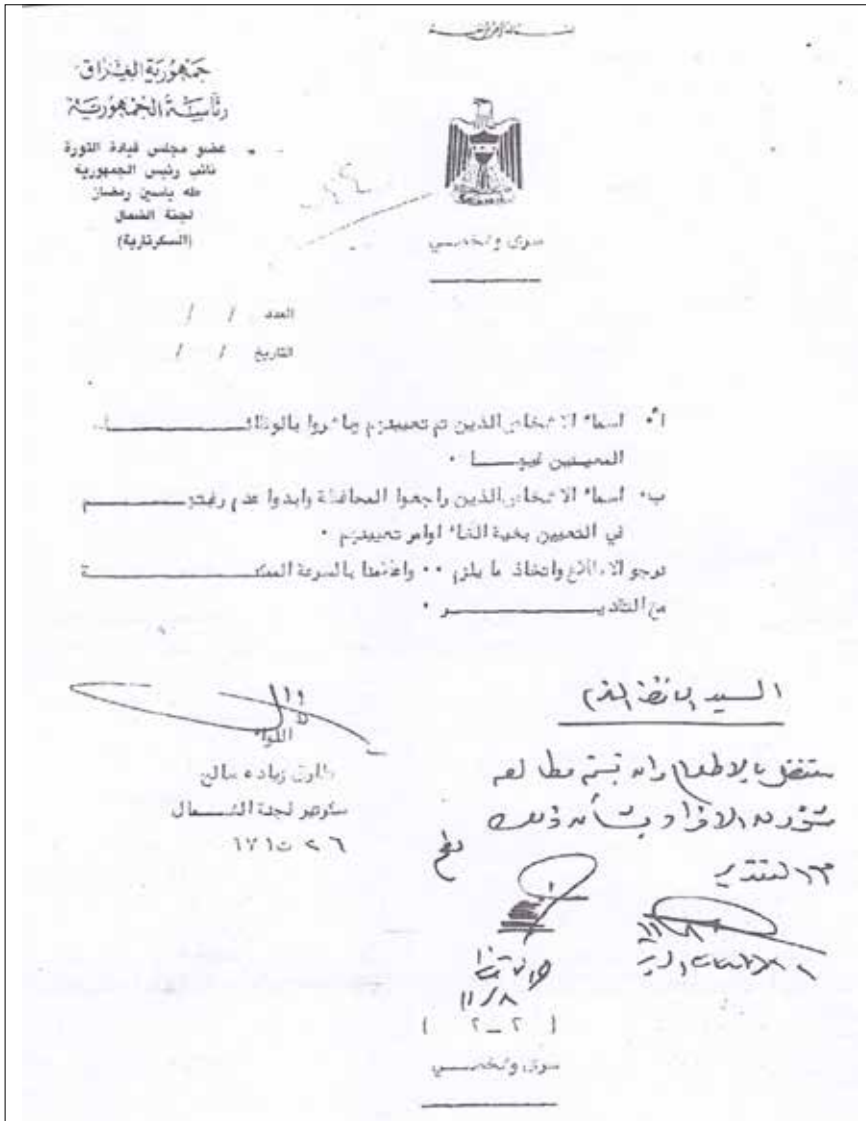 بسم الله الرحمن الرحيم
جمهورية العراق
رئاسة الجمهورية
عضو مجلس قيادة الثورة
نائب رئيس الجمهورية
طه ياسين رمضان
لجنة الشمال
(السكرتارية)
سري وشخصي
العدد / /
التاريخ / /
أ. اسماء الاشخاص الذين تم تعيينهم وباشروا بالوظائف
المعينين فيها .
ب. اسماء الاشخاص الذين راجعوا المحافظة وابدوا عدم رغبتهم
في التعيين بغية الغاء اوامر تعيينهم .
نرجو الاطلاع واتخاذ ما يلزم .. واعلامنا بالسرعة الممكنة
مع التقدير .
اللواء
طارق زياده صالح
سكرتير لجنة الشمال
السيد المحافظ المحترم
للتفضل بالاطلاع
مع التقدير
١١/٨
( ٢ـ٢ )
سري وشخصي